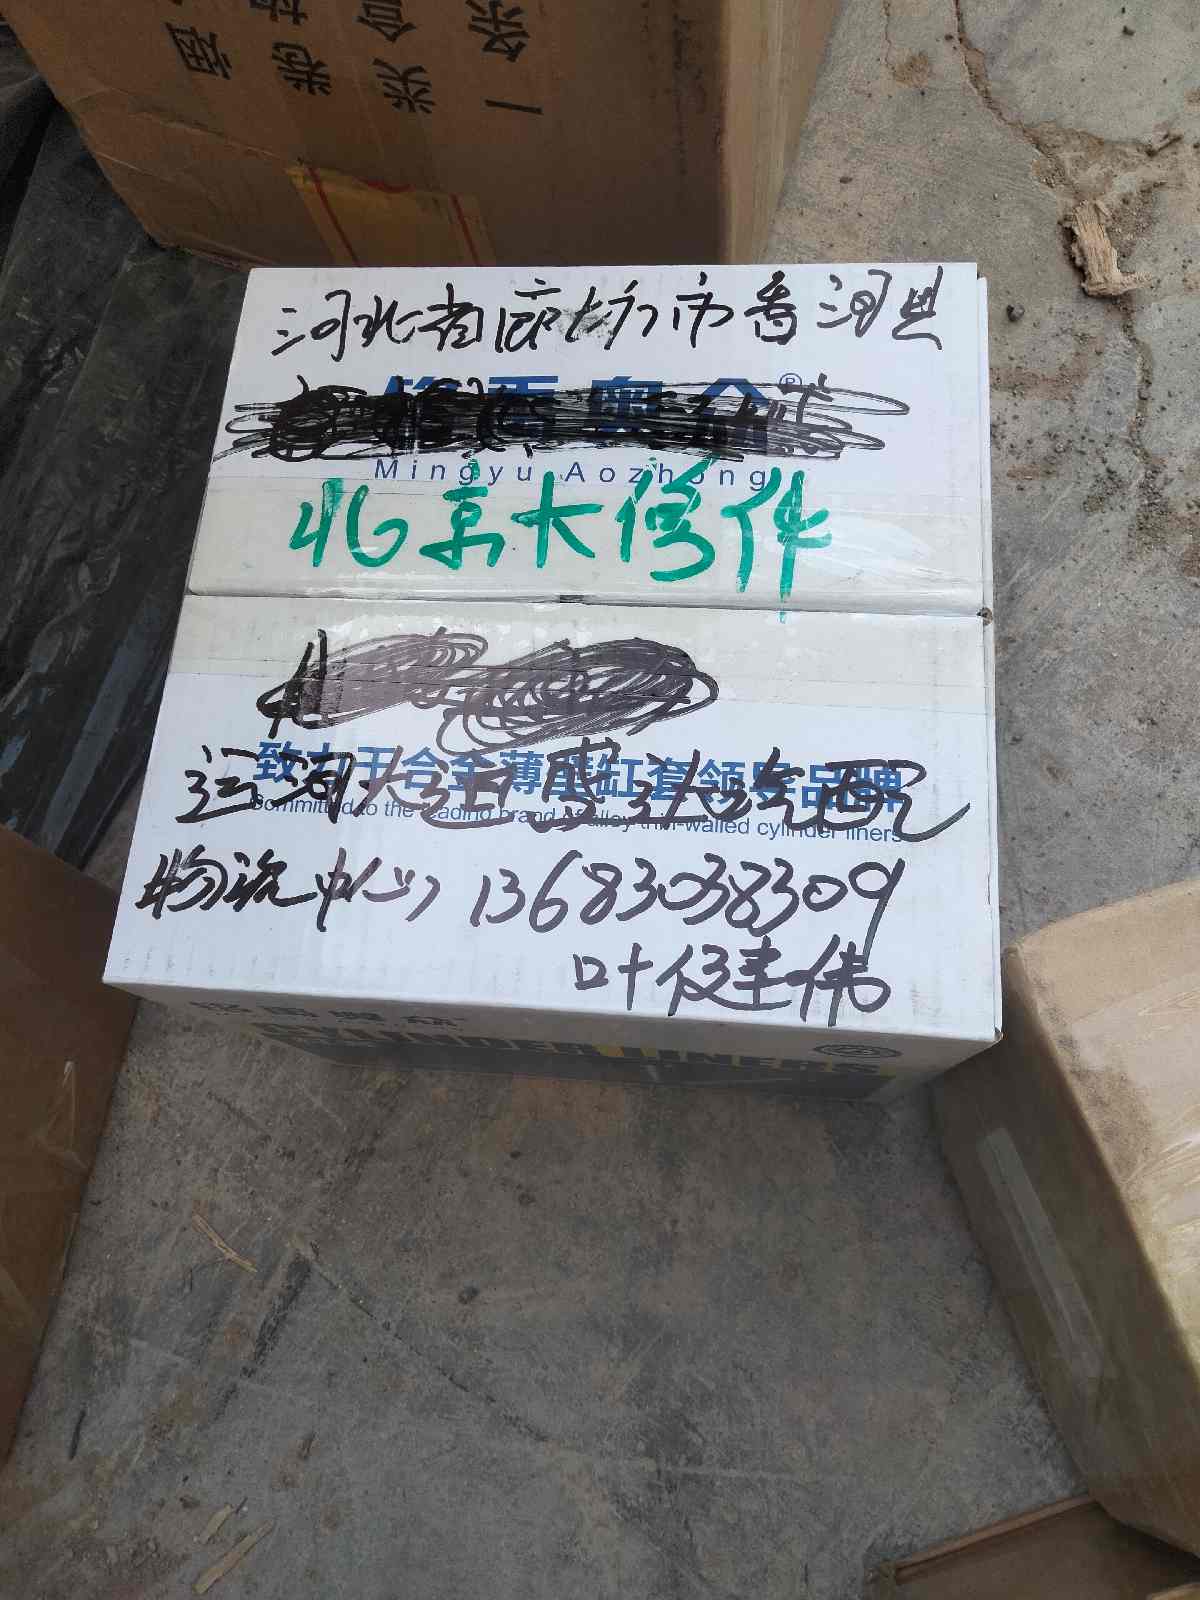 河北省廊坊市香河县
Mingyu Aozhong
北京大修件
致力于合金薄壁缸套领导品牌
Committed to the leading brand of alloy thin-walled cylinder liners
运河大道 达汽配
物流中心 13683038309
叶俊伟
CYLINDER LINERS